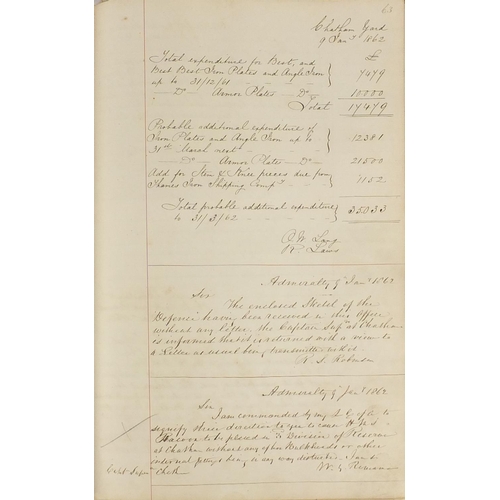 63
Chatham Yard
9 Jany 1862
£
Total expenditure for Best, and
Best Best Iron Plates and Angle Iron
up to 31/12/61 7479
— Do — Armor Plates — Do — 10000
Total 17479
Probable additional expenditure of
Iron Plates and Angle Iron up to 12381
31st March next
— Do — Armor Plates — Do — 21500
Add for Stem & Stern pieces due from
Thames Iron Shipping Compy 1152
Total probable additional expenditure
to 31/3/62 35033
O. W. Lang
Admiralty 9 Jany 1862
Sir
The enclosed Sketch of the
Defence having been received in this Office
without any letter, the Captain Supt at Chatham
is informed that it is returned with a view to
a letter as usual being transmitted with it
R. S. Robinson
Admiralty 9 Jany 1862
Sir
I am commanded by my L. C. of A. to
signify their direction to you to cause H.M.S.
to be placed in Division of Reserve
at Chatham without any of her Bulkheads or other
internal fittings being in any way disturbed. I am &c
W. G. Romaine